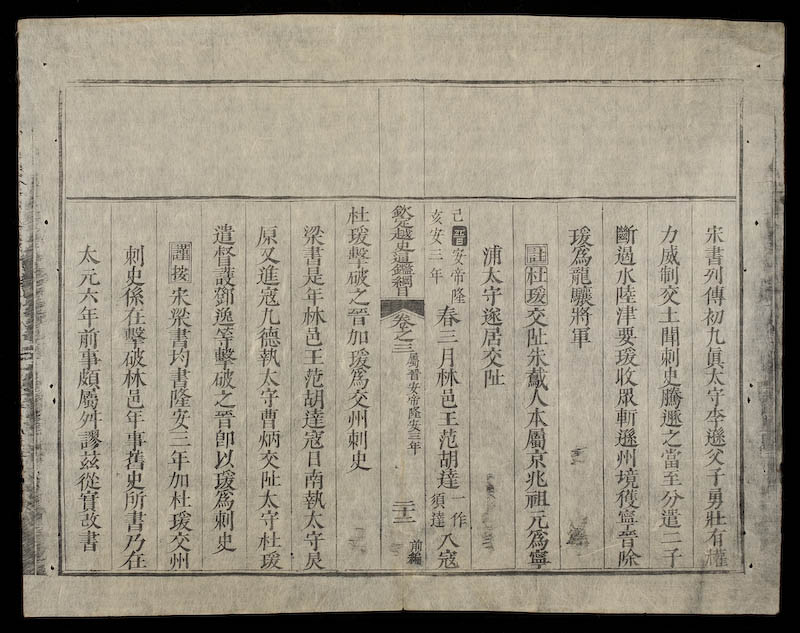 宋書列傳初九眞太守李遜父子勇壯有權
力威制交土聞刺史騰遯之當至分遣二子
斷遏水陸津要瑗收眾斬遜州境獲寧晉除
瑗爲龍驤將軍
註杜瑗交阯朱䳒人本屬京兆祖元爲寧
浦太守遂居交阯
己亥晉安帝隆安三年春三月林邑王范胡達一作須達入寇
欽定越史通鑑綱目 卷之三 屬晉安帝隆安三年 二十二 前編
杜瑗擊破之晉加瑗爲交州刺史
梁書是年林邑王范胡達寇日南執太守炅
原又進寇九德執太守曹炳交阯太守杜瑗
遣督護鄧逸等擊破之晉卽以瑗爲刺史
謹按宋梁書均書隆安三年加杜瑗交州
刺史係在擊破林邑年事舊史所書乃在
太元六年前事頗屬舛謬茲從實改書